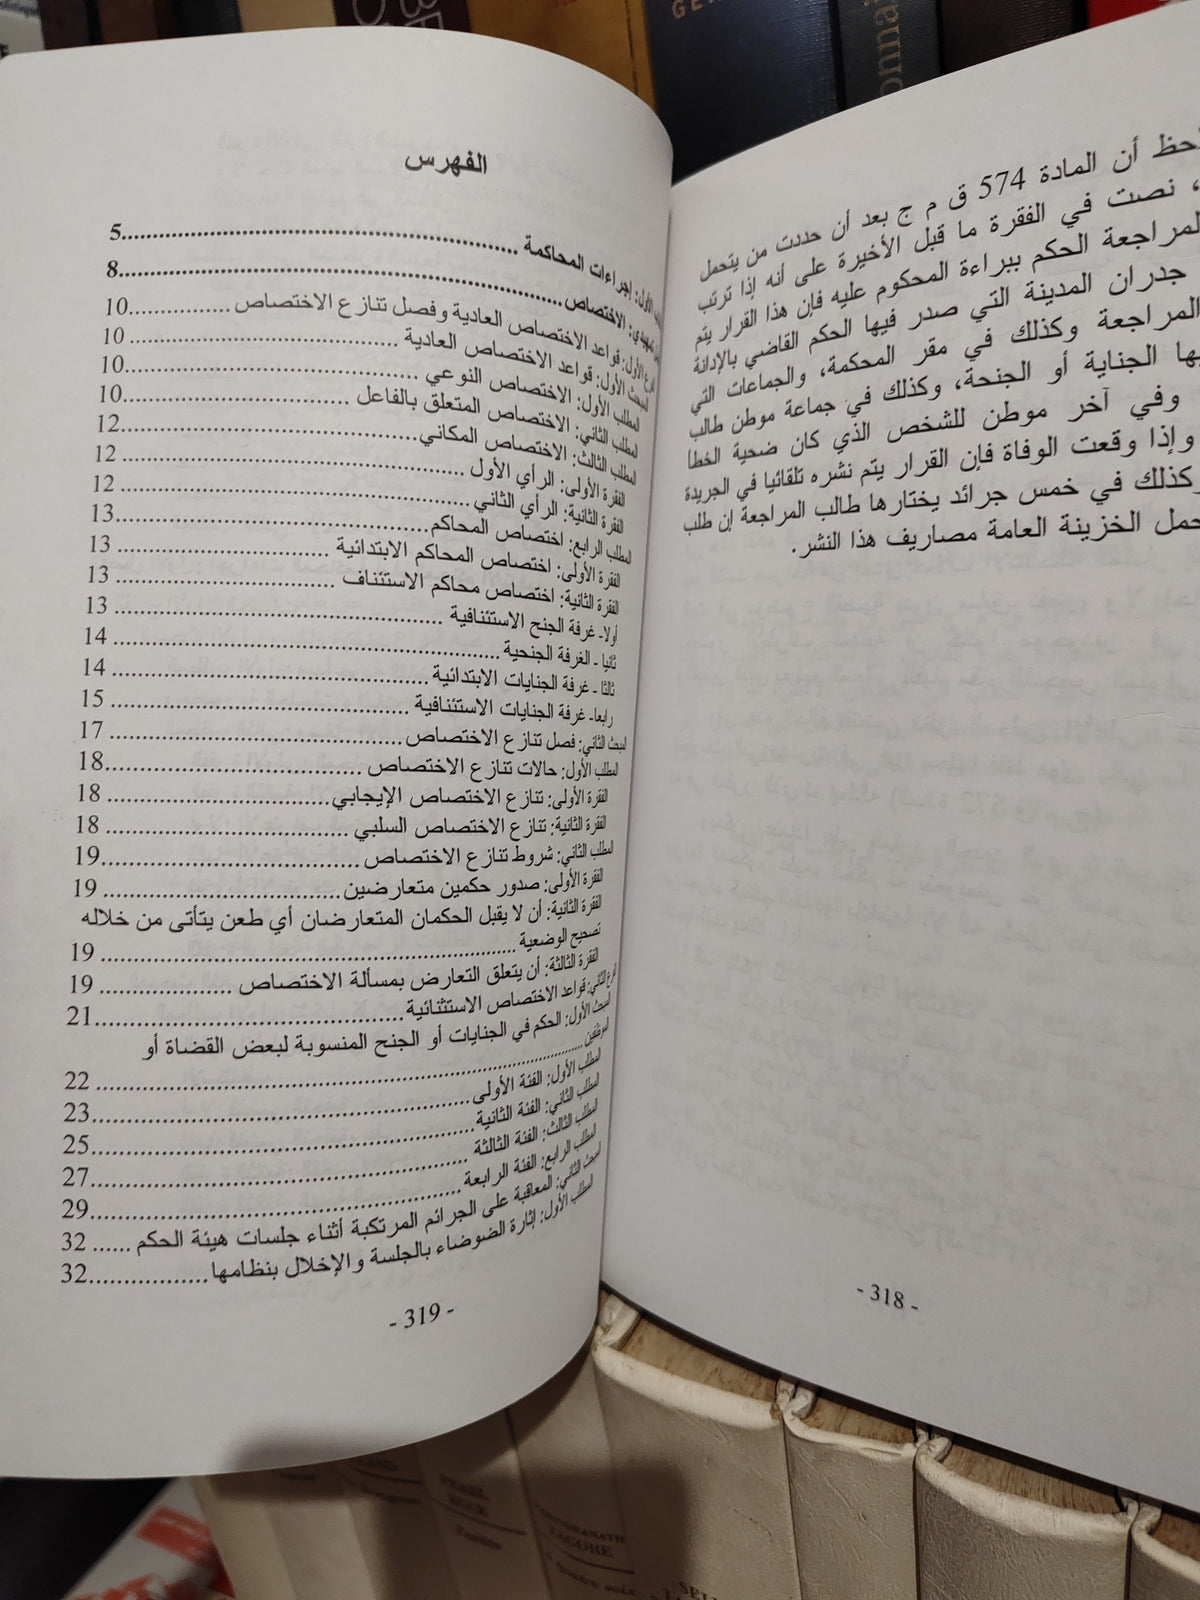 حظ أن المادة 574 ق م ج بعد أن حددت من يتحمل
، نصت في الفقرة ما قبل الأخيرة على أنه إذا ترتب
لمراجعة الحكم ببراءة المحكوم عليه فإن هذا القرار يتم
جدران المدينة التي صدر فيها الحكم القاضي بالإدانة
المراجعة وكذلك في مقر المحكمة، والجماعات التي
يها الجناية أو الجنحة، وكذلك في جماعة موطن طالب
وفي آخر موطن للشخص الذي كان ضحية الخطا
وإذا وقعت الوفاة فإن القرار يتم نشره تلقائيا في الجريدة
كذلك في خمس جرائد يختارها طالب المراجعة إن طلب
حمل الخزينة العامة مصاريف هذا النشر.
- 318 -
الفهرس
الأول: إجراءات المحاكمة ......5
الاختصاص......8
الفرع الأول: قواعد الاختصاص العادية وفصل تنازع الاختصاص......10
المبحث الأول: قواعد الاختصاص العادية ......10
المطلب الأول: الاختصاص النوعي ......10
المطلب الثاني: الاختصاص المتعلق بالفاعل ......10
المطلب الثالث: الاختصاص المكاني......12
الفقرة الأولى: الرأي الأول ......12
الفقرة الثانية: الرأي الثاني......12
المطلب الرابع: اختصاص المحاكم......13
الفقرة الأولى: اختصاص المحاكم الابتدائية ......13
الفقرة الثانية: اختصاص محاكم الاستئناف ......13
أولا- غرفة الجنح الاستئنافية ......13
ثانيا - الغرفة الجنحية ......14
ثالثا - غرفة الجنايات الابتدائية......14
رابعا- غرفة الجنايات الاستئنافية......15
المبحث الثاني: فصل تنازع الاختصاص......17
المطلب الأول: حالات تنازع الاختصاص ......18
الفقرة الأولى: تنازع الاختصاص الإيجابي......18
الفقرة الثانية: تنازع الاختصاص السلبي ......18
المطلب الثاني: شروط تنازع الاختصاص ......19
الفقرة الأولى: صدور حكمين متعارضين......19
الفقرة الثانية: أن لا يقبل الحكمان المتعارضان أي طعن يتأتى من خلاله
تصحيح الوضعية......19
الفقرة الثالثة: أن يتعلق التعارض بمسألة الاختصاص ......19
الفرع الثاني: قواعد الاختصاص الاستثنائية......21
المبحث الأول: الحكم في الجنايات أو الجنح المنسوبة لبعض القضاة أو
الموظفين......22
المطلب الأول: الفئة الأولى......23
المطلب الثاني: الفئة الثانية......25
المطلب الثالث: الفئة الثالثة ......27
المطلب الرابع: الفئة الرابعة......29
المبحث الثاني: المعاقبة على الجرائم المرتكبة أثناء جلسات هيئة الحكم ......32
المطلب الأول: إثارة الضوضاء بالجلسة والإخلال بنظامها......32
- 319 -
PEARL
BUCK
TAGORE